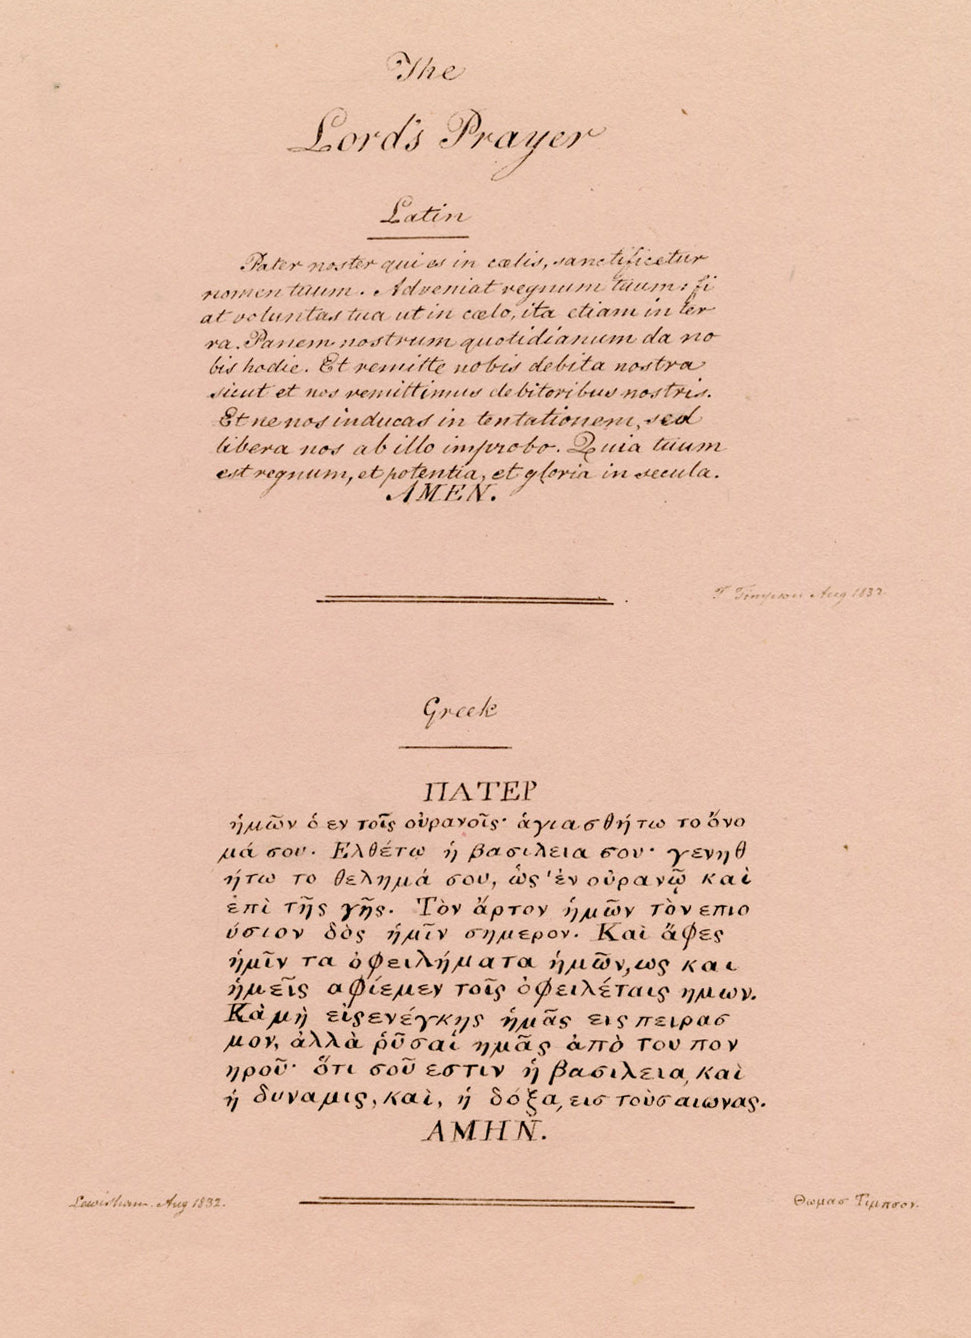 The
Lord's Prayer
Latin
Pater noster qui es in cœlis, sanctificetur
nomen tuum. Adveniat regnum tuum: fi
at voluntas tua ut in cœlo, ita etiam in ter
ra. Panem nostrum quotidianum da no
bis hodie. Et remitte nobis debita nostra
sicut et nos remittimus debitoribus nostris.
Et ne nos inducas in tentationem, sed
libera nos ab illo improbo. Quia tuum
est regnum, et potentia, et gloria in secula.
AMEN.
T Timpson Aug 1832
Greek
ΠΑΤΕΡ
ἡμῶν ὁ εν τοῖς οὐρανοῖς· ἁγιασθήτω το ὄνο
μά σου. Ελθέτω ἡ βασιλεια σου· γενηθ
ήτω το θελημά σου, ὡς 'ἐν οὐρανῷ καὶ
ἐπὶ τῆς γῆς. Τὸν ἄρτον ἡμῶν τὸν επιο
ύσιον δὸς ἡμῖν σημερον. Καὶ ἄφες
ἡμῖν τα ὀφειλήματα ἡμῶν, ως και
ἡμεῖς αφίεμεν τοῖς ὀφειλέταις ημων.
Κὰ μὴ εἰςενέγκης ἡμᾶς εις πειρασ
μον, ἀλλὰ ῥῦσαἱ ημᾶς ἀπὸ του πον
ηροῦ· ὅτι σοῦ εστιν ἡ βασιλεια, καὶ
ἡ δυναμις, καὶ, ἡ δόξα, εισ τοὺσ αιωνας.
ΑΜΗΝ.
Lewisham. Aug 1832.
Θωμασ Τιμπσον.